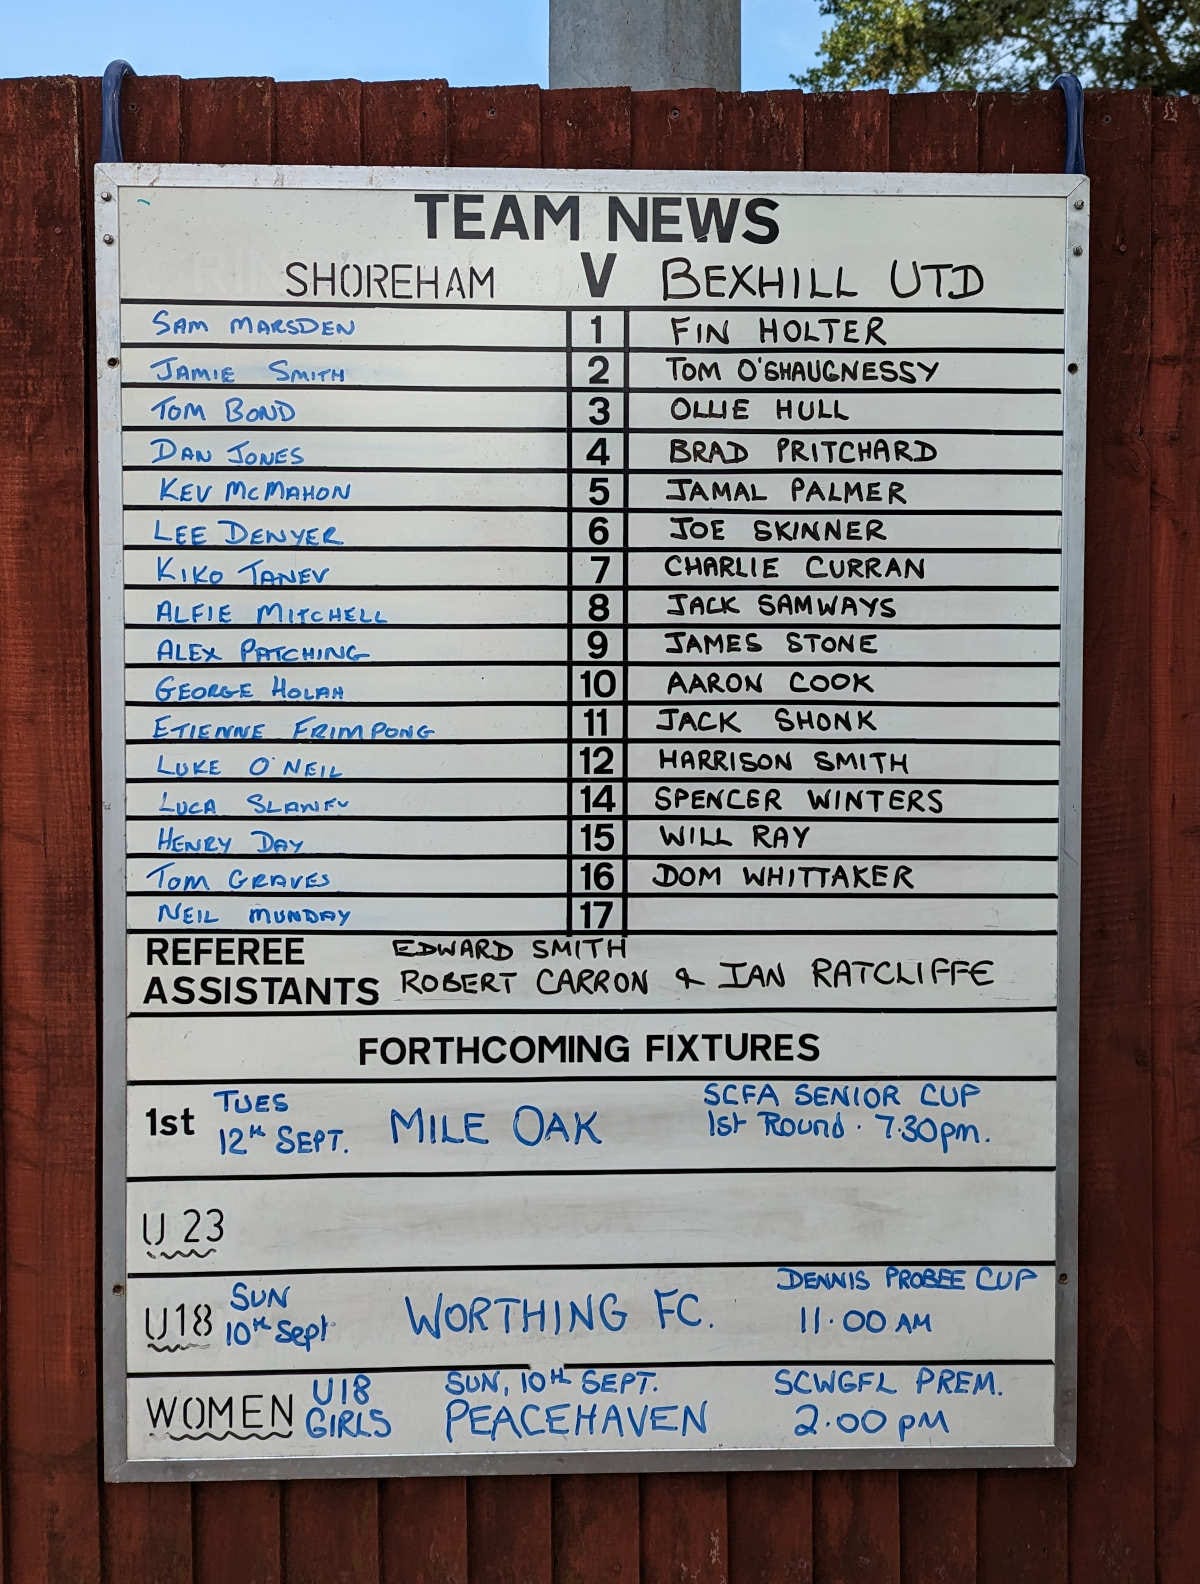 TEAM NEWS
SHOREHAM V BEXHILL UTD
SAM MARSDEN 1 FIN HOLTER
JAMIE SMITH 2 TOM O'SHAUGNESSY
TOM BOND 3 OLLIE HULL
DAN JONES 4 BRAD PRITCHARD
KEV MCMAHON 5 JAMAL PALMER
LEE DENYER 6 JOE SKINNER
KIKO TANEV 7 CHARLIE CURRAN
ALFIE MITCHELL 8 JACK SAMWAYS
ALEX PATCHING 9 JAMES STONE
GEORGE HOLAH 10 AARON COOK
ETIENNE FRIMPONG 11 JACK SHONK
LUKE O'NEIL 12 HARRISON SMITH
LUCA 14 SPENCER WINTERS
HENRY DAY 15 WILL RAY
TOM GRAVES 16 DOM WHITTAKER
NEIL MUNDAY 17
REFEREE EDWARD SMITH
ASSISTANTS ROBERT CARRON & IAN RATCLIFFE
FORTHCOMING FIXTURES
1st TUES 12TH SEPT. MILE OAK SCFA SENIOR CUP
1st Round · 7.30pm.
U 23
U18 SUN 10TH Sept WORTHING FC. DENNIS PROBEE CUP
11.00 AM
WOMEN U18 GIRLS SUN, 10TH SEPT. SCWGFL PREM.
PEACEHAVEN 2.00 PM